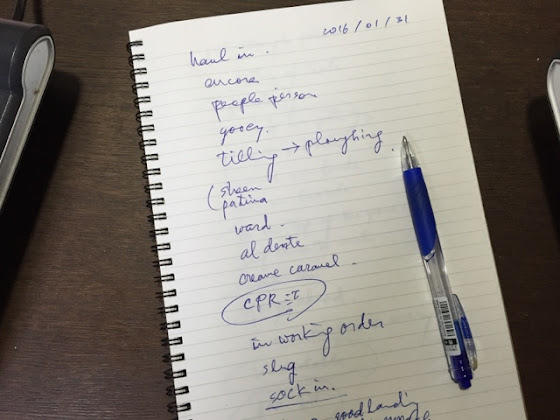 2016/01/31
haul in.
encore
people person
gooey.
tilling → ploughing.
(sheen
patina
ward.
al dente
creame caramel.
CPR
in working order
slug
sock in.
good landing